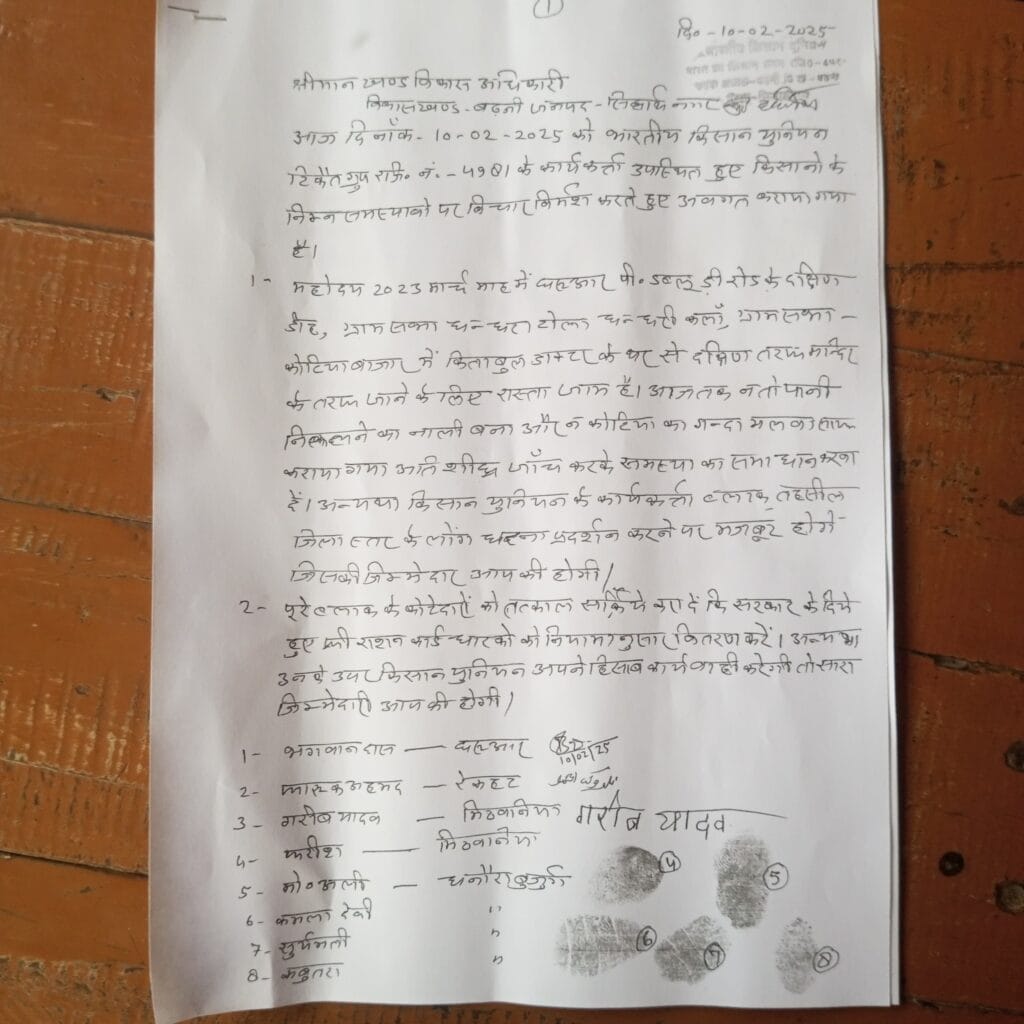 1
दि० - 10-02-2025
भारतीय किसान यूनियन
श्रीमान खण्ड विकास अधिकारी
विकासखण्ड - बढ़नी जनपद - सिद्धार्थ नगर
आज दिनाँक - 10-02-2025 को भारतीय किसान युनियन
टिकैत ग्रुप राजि० नं. - के कार्यकर्त्ता उपस्थित हुए किसानो के
निम्न समस्याओ पर विचार विर्मश करते हुए अवगत कराया गया
है।
1- महोदय 2023 मार्च माह में पी. डबलू डी रोड के दक्षिण
ग्राम सभा टोला कलाँ, ग्राम सभा -
कोटिया बाजार में डाक्टर के घर से दक्षिण तरफ मन्दिर
के तरफ जाने के लिए रास्ता जाम है। आजतक न तो पानी
निकलने का नाली बना और न कोटिया का गन्दा मलवा साफ
कराया गया अति शीघ्र जाँच करके समस्या का समाधान करवा
दें। अन्यथा किसान युनियन के कार्यकर्त्ता ब्लाक तहसील
जिला स्तर के लोग धरना प्रदर्शन करने पर मजबूर होगें
जिसकी जिम्मेदार आप की होगी/
2- पूरे ब्लाक के कोटेदारों को तत्काल करा दें कि सरकार के दिये
हुए फ्री राशन कार्ड धारको को नियामानुसार वितरण करें। अन्यथा
उनके उपर किसान युनियन अपने हिसाब कार्यवाही करेगी तो सारा
जिम्मेदारी आप की होगी/
1- भगवानदास —
10/02/25
2- फारूक अहमद — सेकहट
3- गरीब यादव — मिठवानिया गरीब यादव
4- — मिठवानिया
5- मो० अली — धनौरा बुजुर्ग
6- कमला देवी "
7- सुर्यमती "
8- कबुतरा "
4
5
6
7
8